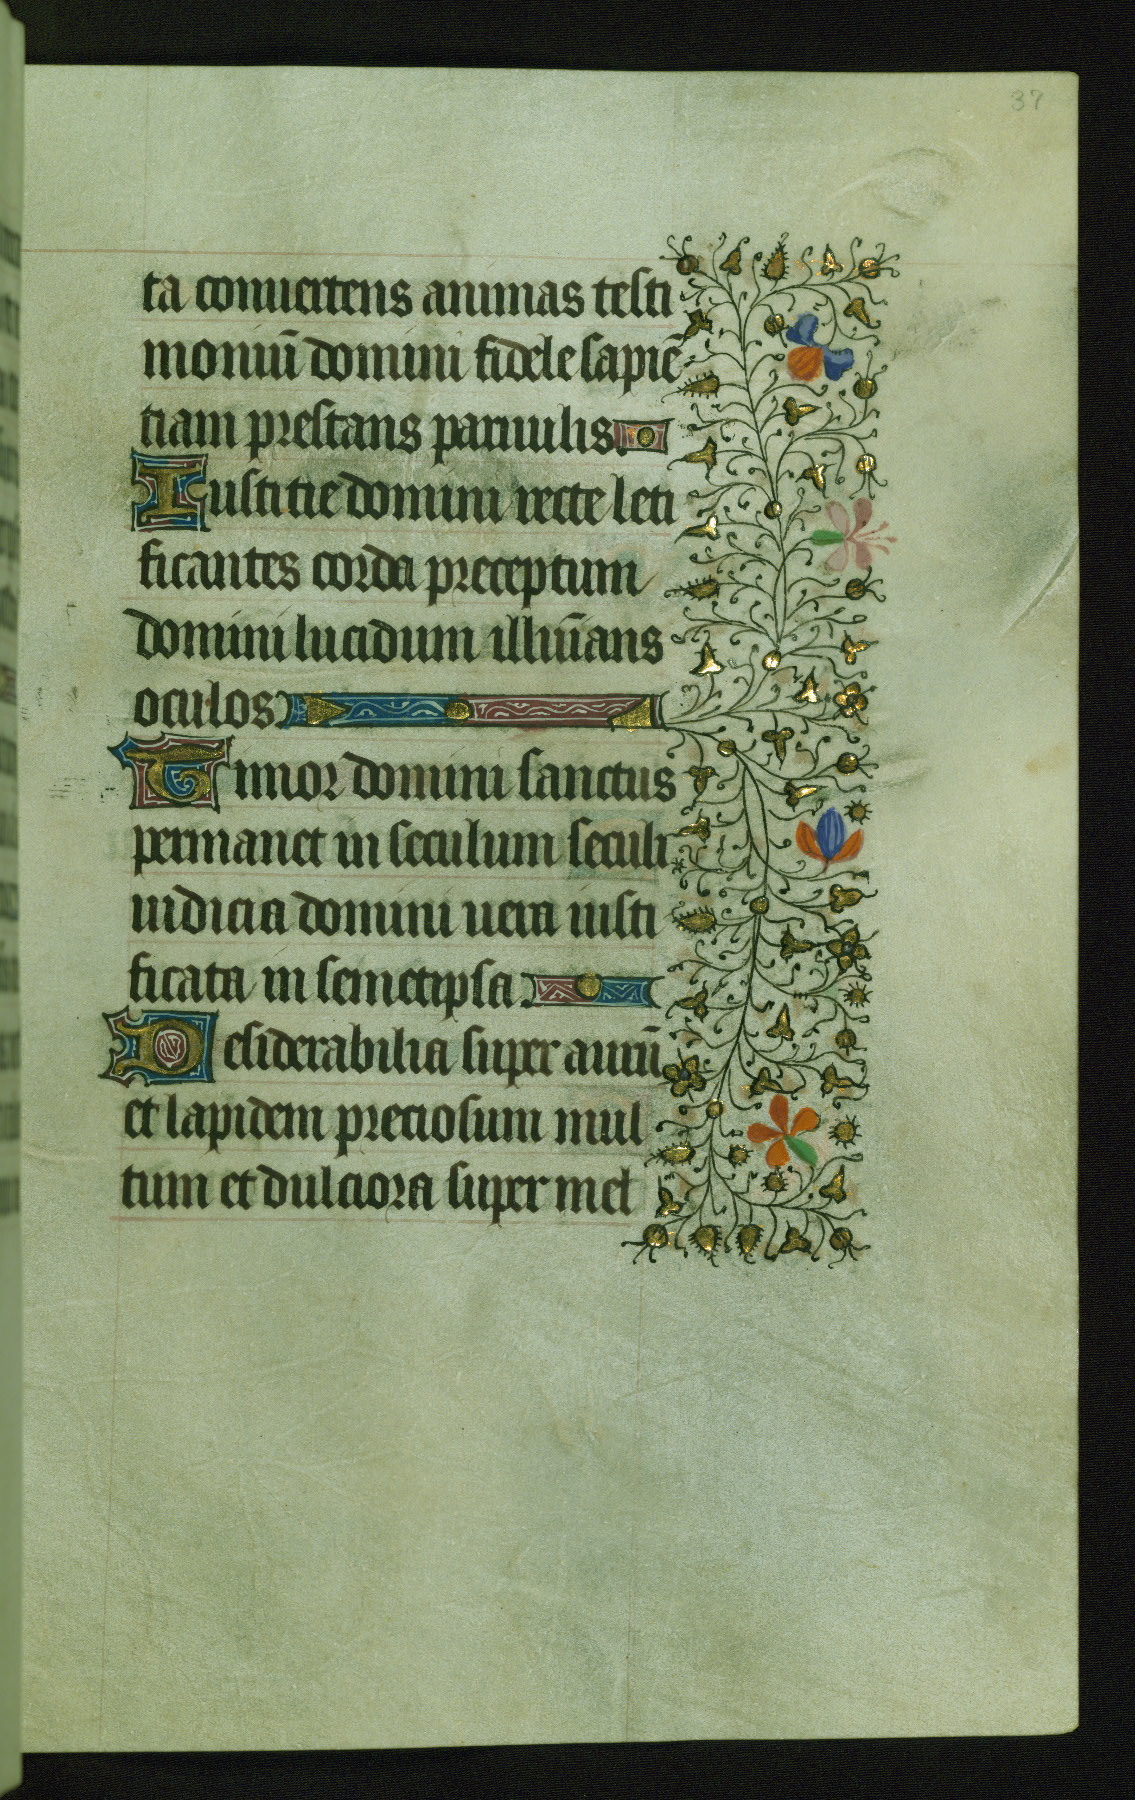 37
ta conuertens animas testi
moniū domini fidele sapiē
tiam prestans paruulis.
Iustitie domini recte leti
ficantes corda preceptum
domini lucidum illūans
oculos
Timor domini sanctus
permanet in seculum seculi
iudicia domini uera iusti
ficata in semetipsa
Desiderabilia super aurū
et lapidem preciosum mul
tum et dulciora super mel